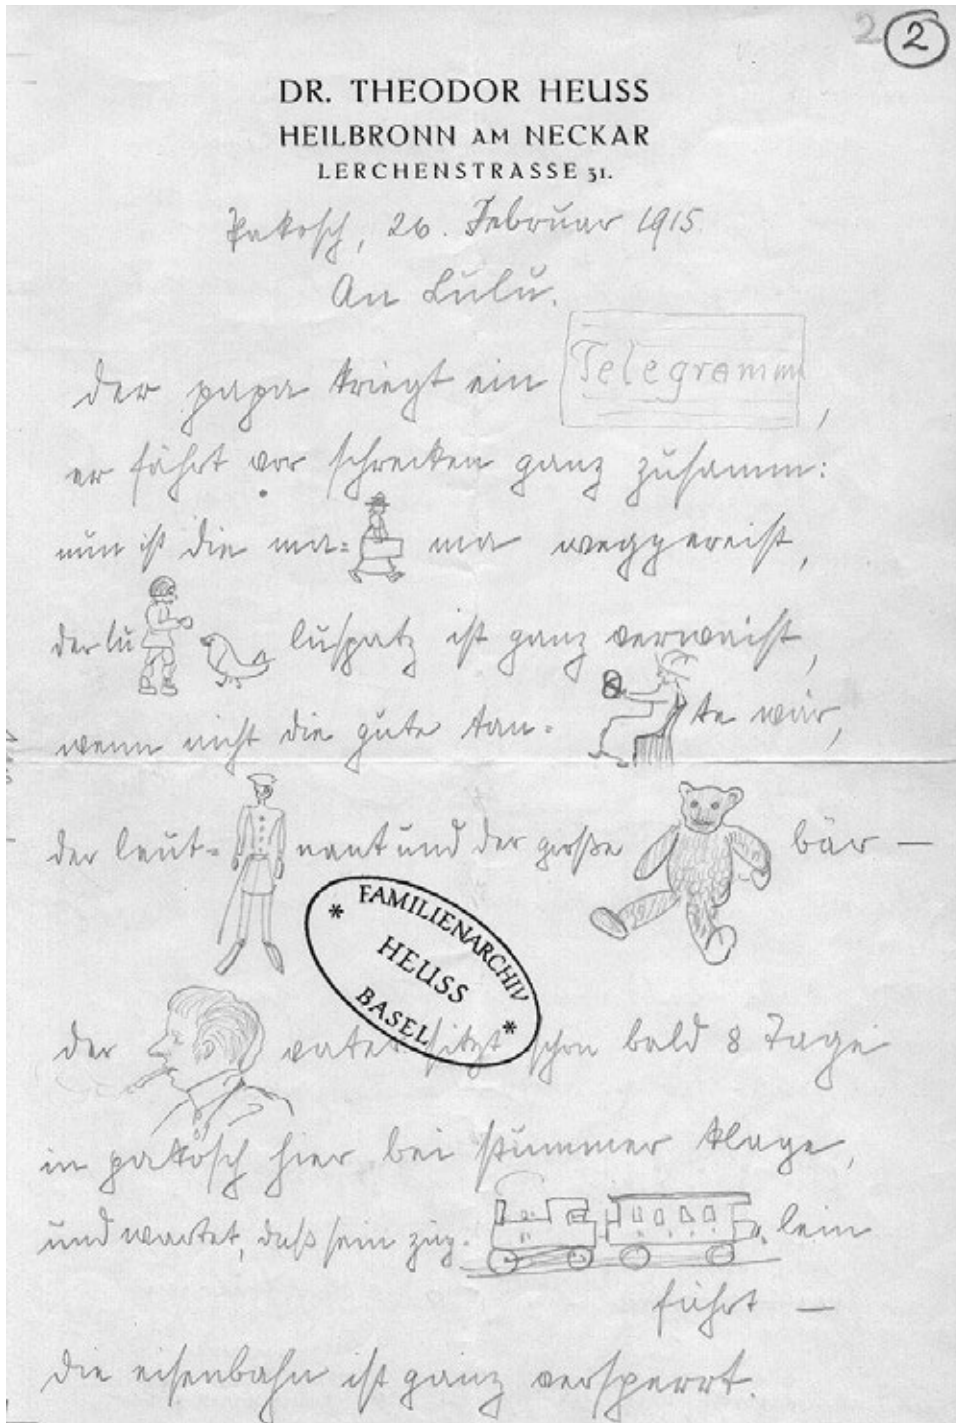 2 2
DR. THEODOR HEUSS
HEILBRONN AM NECKAR
LERCHENSTRASSE 31.
Pakosch, 26. Februar 1915.
An Lulu.
der papa kriegt ein Telegramm,
er fährt vor schrecken ganz zusamm:
nun ist die ma- ma weggereist,
der lu luspatz ist ganz verwaist,
wenn nicht die gute tan- te wär,
der leut- nant und der große bär —
FAMILIENARCHIV
HEUSS
BASEL
der vater sitzt schon bald 8 Tage
in pakosch hier bei stummer klage,
und wartet, daß sein züg- lein
fährt —
die eisenbahn ist ganz versperrt.